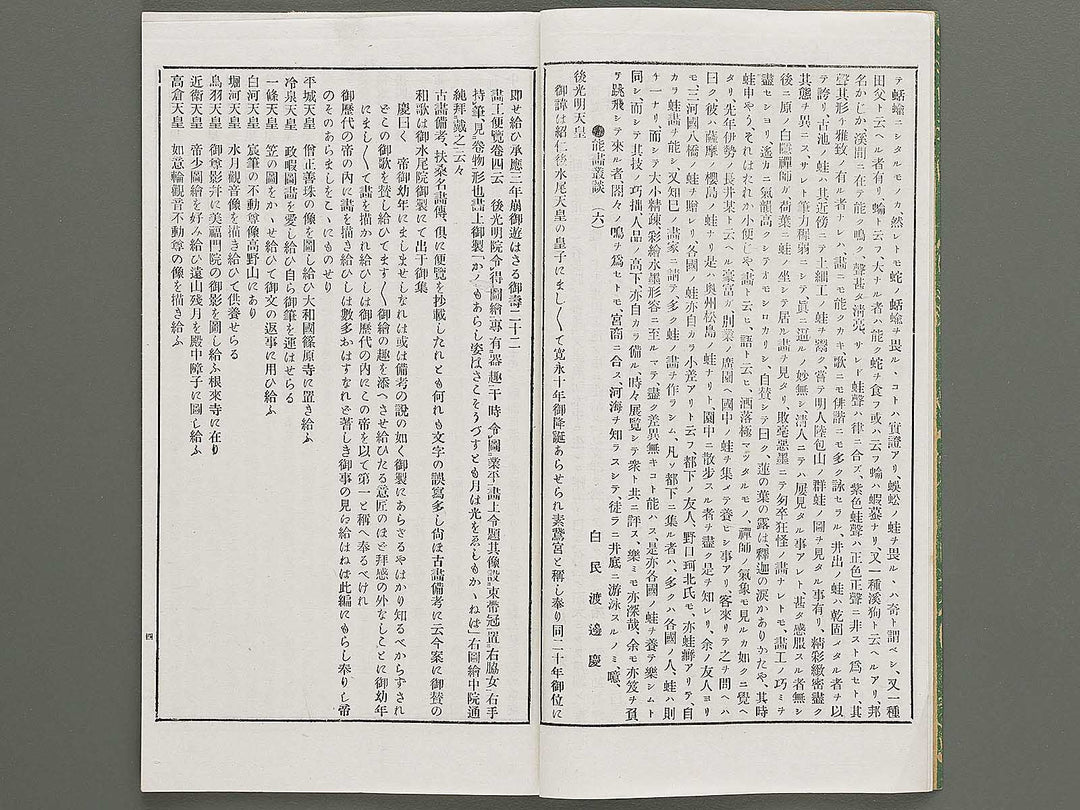 テ蛞蝓ニシタルモノカ然レトモ蛇ノ蛞蝓ヲ畏ル、コトハ實證アリ、蜈蚣ノ蛙ヲ畏ル、ハ奇ト謂ベシ、又一種
田父ト云ヘル者有リ蝓ト云フ、大ナル者ハ能ク蛇ヲ食フ或ハ云フ蝓ハ蝦蟇ナリ、又一種溪狗ト云ヘルアリ、邦
名かじか溪間ニ在テ能ク鳴ク、聲甚タ淸亮、サレド蛙聲ハ律ニ合ズ、紫色蛙聲ハ正色正聲ニ非スト爲セト、其
聲其形ヲ雅致ノ有ル者ナレハ畵ニモ能クカキ、歌ニモ俳諧ニモ多ク詠セラル、井出ノ蛙ノ乾固メタル者ヲ以
テ誇リ、古池ノ蛙ハ其近傍ニテ土細工ノ蛙ヲ鬻ク、嘗テ明人陸包山ノ群蛙ノ圖ヲ見タル事有リ、精彩緻密盡ク
其態ヲ異ニス、サレト筆力稚弱ニシテ眞ニ逼ルノ妙無シ、淸人ニテハ屢見タル事アレト、甚タ感服スル者無シ
後ニ原ノ白隱禪師ガ荷葉ニ蛙ノ坐シテ居ル畵ヲ見タリ、敗毫惡墨ニテ匆卒狂怪ノ畵ナレトモ、畵工ノ巧ミヲ
盡セシヨリ遙カニ氣韻高クシテオモシロカリシ、自賛シテ曰ク、蓮の葉の露は釋迦の涙かありかたや、其時
蛙申やう、それはたれか小便じや、畵ト云ヒ、語ト云ヒ、洒落極マツタルモノ、禪師ノ氣象モ見ルカ如クニ覺ヘ
タリ、先年伊勢ノ長井某ト云ヘル豪富ガ別業ノ廣園ニ國中ノ蛙ヲ集メテ養ヒシ事アリ、客來リテ之ヲ問ヘハ
曰ク彼ハ薩摩ノ櫻島ノ蛙ナリ是ハ奥州松島ノ蛙ナリト、園中ニ散步スル者ヲ盡ク是ヲ知レリ、余ノ友人ヨリ
モ三河國八橋ノ蛙ヲ贈レリ、各國ノ蛙亦自カラ小差アリト云フ、都下ノ友人、野口珂北氏モ、亦蛙癖アリテ、自
カラ蛙畵ヲ能シ又知己ノ畵家ニ請テ多ク蛙ノ畵ヲ作ラシム、凡ソ都下ニ集ル者ハ、多クハ各國ノ人、蛙ハ則
チ一ナリ、而シテ大小精疎彩繪水墨形容ニ至ルマテ、盡ク差異無キコト能ハス、是亦各國ノ蛙ヲ養テ樂シムト
同シ、而シテ其技ノ巧拙、人品ノ高下亦自カラ備ル、時々展覽シテ衆ト共ニ評ス、樂ミモ亦深哉、余モ亦笈ヲ負
ヲ跳飛シテ來ル者閣々ノ鳴ヲ爲セトモ、宮商ニ合ス、河海ヲ知ラスシテ、徒ラニ井底ニ游泳スルノミ、噫、
能畵叢談（六）
白民渡邊慶
後光明天皇
御諱は紹仁後水尾天皇の皇子にまし〱て寬永十年御降誕あらせられ素鵞宮と稱し奉り同二十年御位に
即せ給ひ承應三年崩御遊はさる御壽二十二
畵工便覽卷四云　後光明院令得圖繪專有器趣干時令圖業平畵上令題其像設束帶冠置右脇女右手
持筆、見卷物形也畵上御製「かくもあらし姿はさこそうづすとも月は光をゑしもかゝねは」右圖繪中院通
純拜戴之云々
古畵備考、扶桑名畵傳、俱に便覽を抄載したれとも何れも文字の誤寫多し尙ほ古畵備考に云今案に御賛の
和歌は御水尾院御製にて出于御集
慶曰く　帝御幼年にましませしなれは或は備考の說の如く御製にあらさるやはかり知るべからずされ
とこの御歌を賛し給ひてます〱御繪の趣を添へさせ給ひたる意匠のほと拜感の外なしことに御幼年
にまし〱て畵を描かれ給ひしは御歷代の内にこの帝を以て第一と稱へ奉るべけれ
御歷代の帝の内に畵を描き給ひしは數多おはすなれど著しき御事の見ゐ給はねは此編にもらし奉りし帝
のそのあらましをこゝにものせり
平城天皇　僧正善珠の像を圖し給ひ大和國篠原寺に置き給ふ
冷泉天皇　政暇圖畵を愛し給ひ自ら御筆を運はせらる
一條天皇　笠の圖をかゝせ給ひて御文の返事に用ひ給ふ
白河天皇　宸筆の不動尊像高野山にあり
堀河天皇　水月觀音像を描き給ひて供養せらる
鳥羽天皇　御尊影幷に美福門院の御影を圖し給ふ根來寺に在り
近衛天皇　帝少圖繪を好み給ひ遠山殘月を殿中障子に圖し給ふ
高倉天皇　如意輪觀音不動尊の像を描き給ふ
四